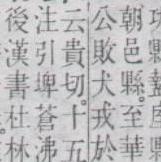 縣盩
朝邑縣。至華
公敗犬戎於
云貴切。十五
注引埤蒼沸
後漢書杜林